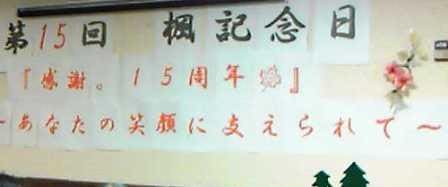 第15回 楓記念日
『感謝。15周年🍁』
～あなたの笑顔に支えられて～